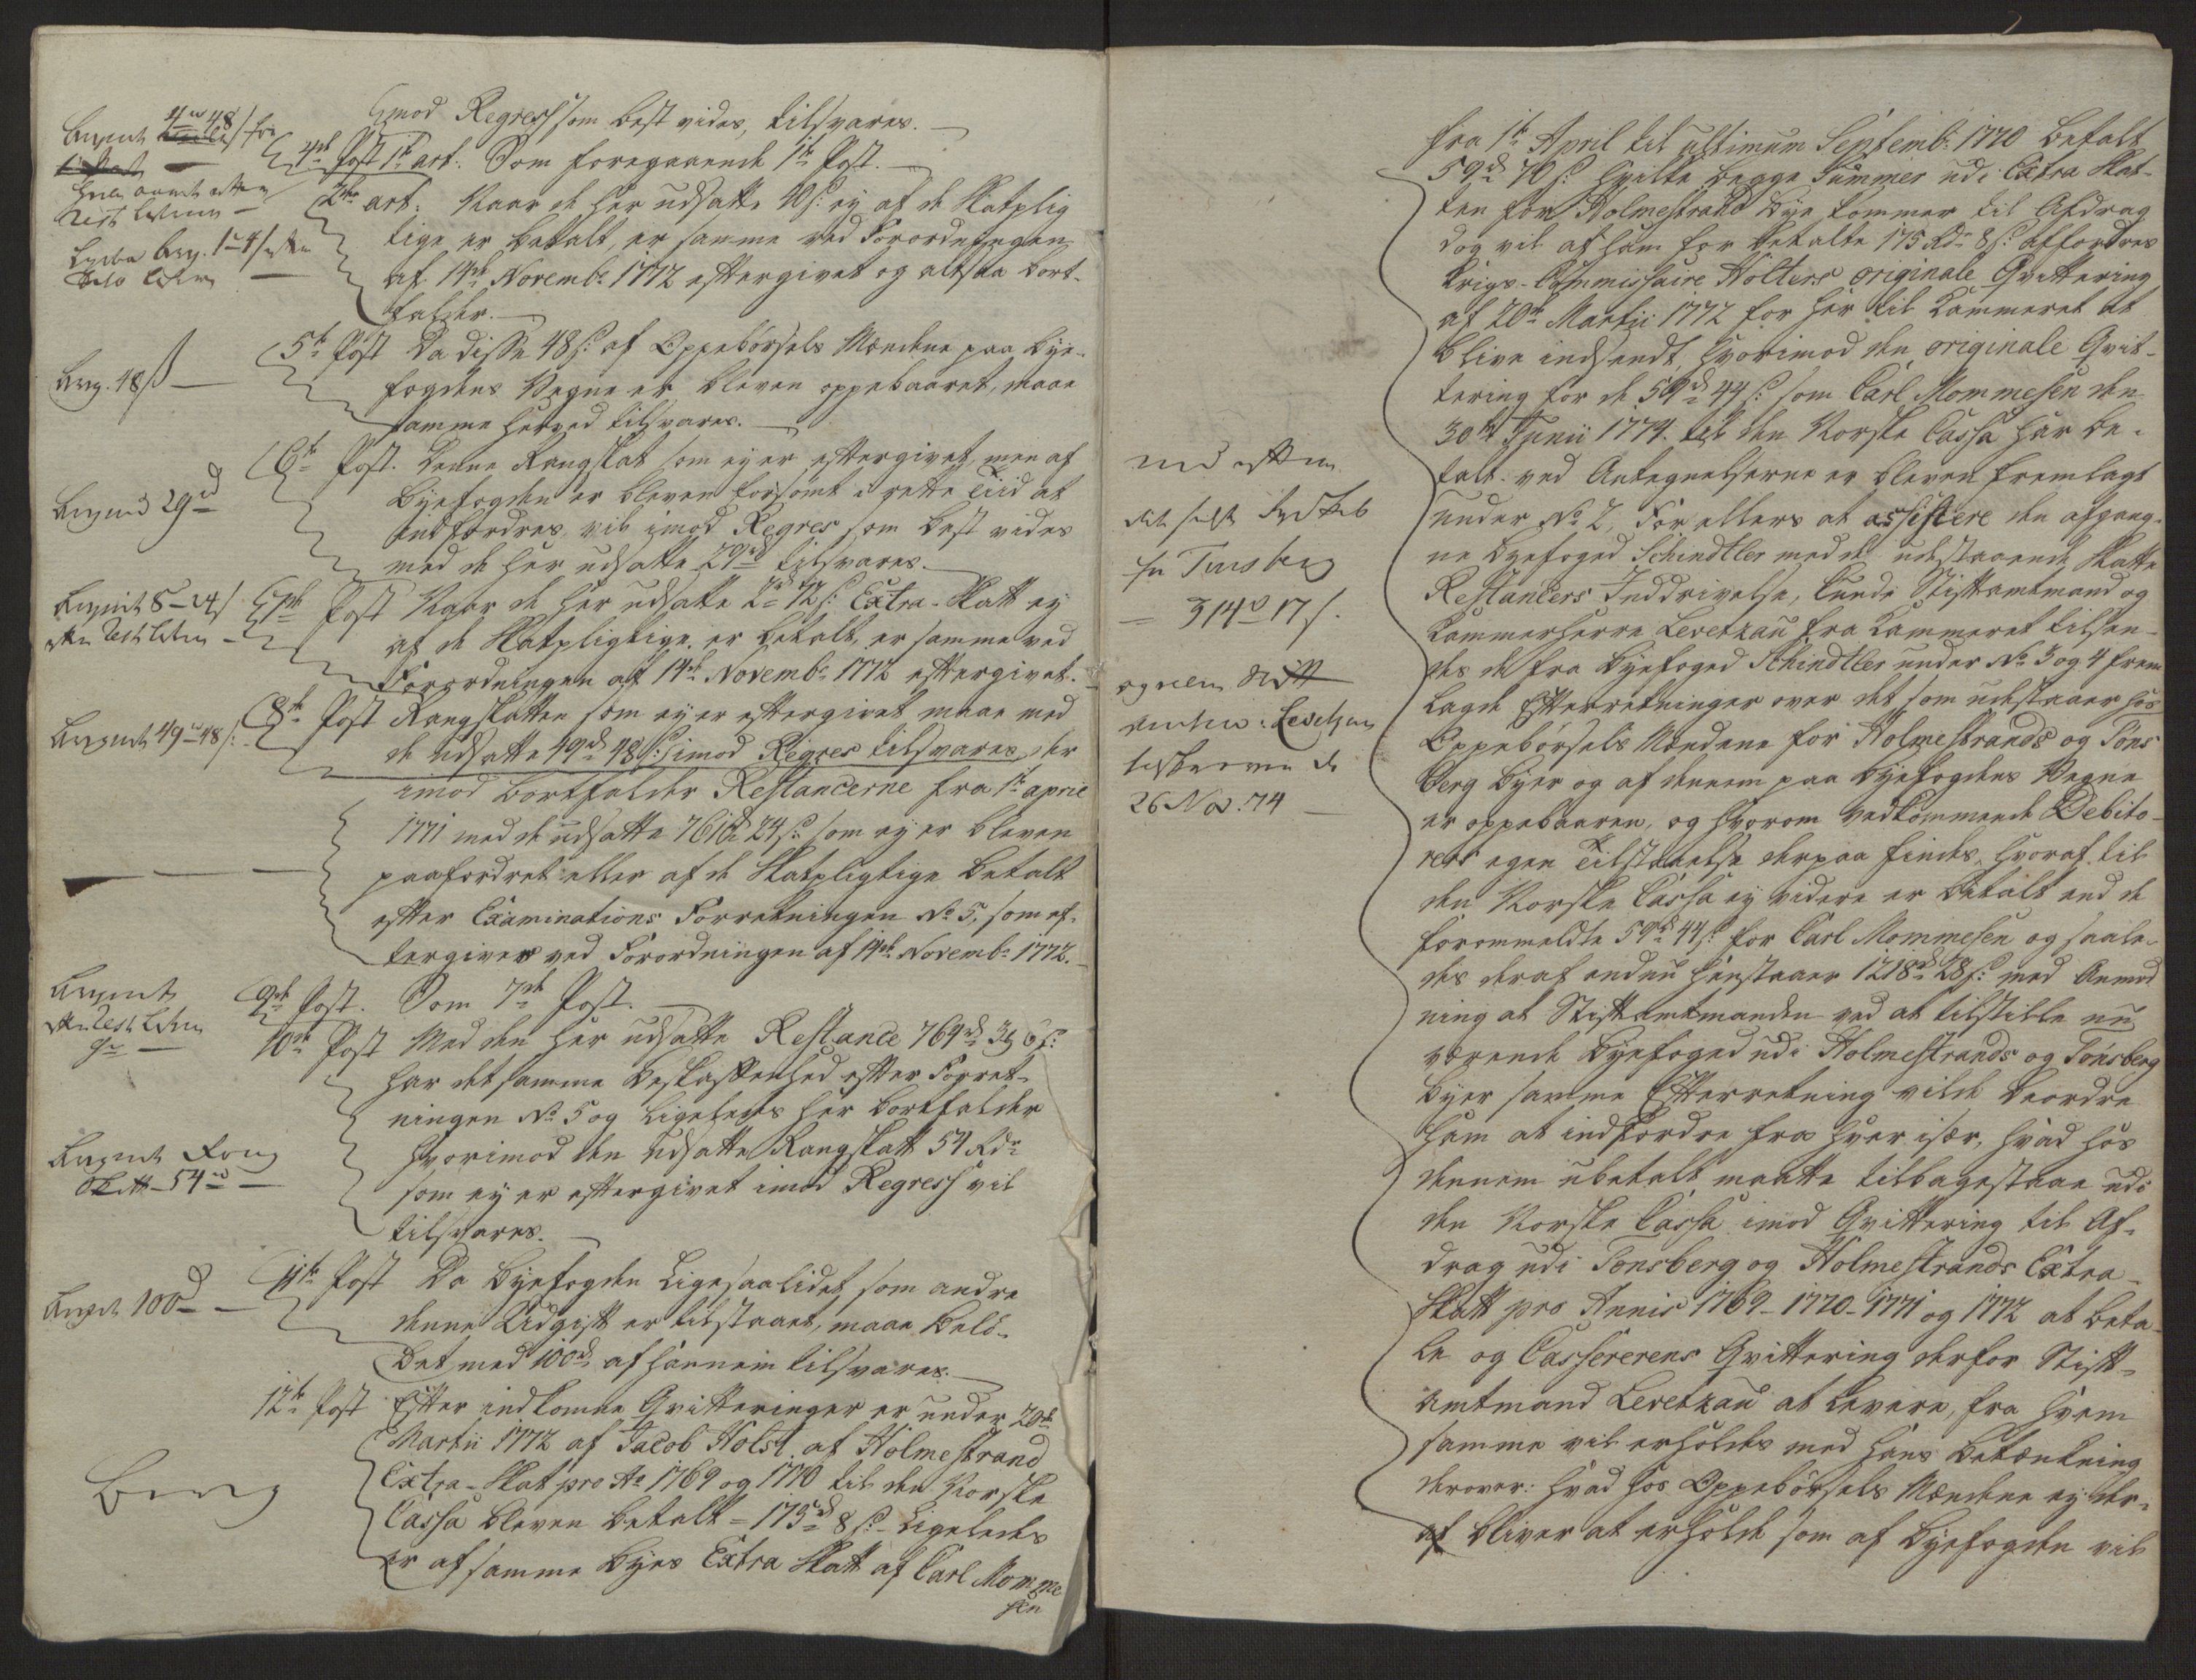 imod Regress som best vides, tilsvares.
4de Post 1te art: Som foregaaende 1te Post.
2den art: Naar de her udsatte 40 s: ey af de Skatplig
tige er betalt, er samme ved Forordningen
af 14de Novembr 1772 eftergivet og altsaa bort-
falder.
5te Post Da disse 48 s: af Oppebørsels Mændene paa Bye-
fogdens Vegne er bleven oppebaaret, maae
samme herved tilsvares.
6te Post. Denne Rangskat som ey er eftergivet, men af
Byefogden er bleven forsømt i rette Tiid at
indfordres, vil imod Regres som best vides
med de her udsatte 29 rd tilsvares.
7de Post Naar de her udsatte 2 rd 12 s: Extra-Skatt ey
af de Skatpligtige er betalt, er samme ved
Forordningen af 14de Novembr 1772 eftergivet.
8de Post Rangskatten som ey er eftergivet maae med
de udsatte 49 rd 48 s: imod Regres tilsvares, der
imod bortfalder Restancerne fra 1te april
1771 med de udsatte 761 rd 24 s: som ey er bleven
paafordret eller af de Skatpligtige betalt
efter Examinations Forretningen No 5, som ef-
tergives ved Forordningen af 14de Novembr 1772.
9de Post. Som 7de Post.
10de Post Med den her udsatte Restance 764 rd
har det samme Beskaffenhed efter Forret-
ningen No 5 og Ligeledes her bortfalder
hvorimod den udsatte Rangskatt 54 Rdr
som ey er eftergivet imod Regress vil
tilsvares.
11te Post Da Byefogden Ligesaalidet som andre
denne Udgift er tilstaaet, maae Belø-
bet med 100 rd af hannem tilsvares.
12te Post Efter indkomne Qvitteringer er under 20de
Martii 1772 af Jacob Holst af Holmestrand
Extra-Skat pro Ao 1769 og 1770 til den Norske
Cassa bleven betalt 175 rd 8 s: Ligeledes
er af samme Byes Extra Skatt af Carl Momme
sen
Arg. 48 s
29 rd
49 rd 48 s:
54 rd
100 rd
fra 1te April til ultimum Septembr 1770 betalt
59 rd 70 s: hvilke begge Summer udi Extra Skat-
ten for Holmestrand Bye kommer til Afdrag
dog vil af ham for betalte 175 Rdr 8 s: affordres
Krigs-Commissaire Holters originale Qvittering
af 20de Martii 1772 for her til Kammeret at
blive indsendt, hvorimod den originale Qvit-
tering for de 59 rd 44 s: som Carl Mommesen den
30te Junii 1774. til den Norske Cassa har be-
talt ved Antegnelserne er bleven fremlagt
under No 2, For ellers at assistere den afgang-
ne Byefoged Schindtler med de udestaaende Skatte
Restancers Inddrivelse, kunde Stiftamtmand og
Kammerherre Levetzau fra Kammeret tilsen-
des de fra Byefoged Schindtler under No 3 og 4 frem
lagde Efterretninger over det som udestaaer hos
Oppebørsels Mændene for Holmestrands og Tøns
berg Byer og af dennem paa Byefogdens Vegne
er oppebaaren, og hvorom vedkommende Debito-
rers egen Tilstaaelse derpaa findes, hvoraf til
den Norske Cassa ey videre er betalt end de
forommeldte 59 rd 44 s: for Carl Mommesen og saale-
des deraf endnu henstaaer 1218 rd 28 s: med Anmod
ning at Stiftamtmanden ved at tilstille nu
værende Byefoged udi Holmestrands og Tønsberg
Byer samme Efterretning vilde beordre
ham at indfordre fra hver især, hvad hos
dennem ubetalt maatte tilbagestaae udi
den Norske Cassa imod Qvittering til Af-
drag udi Tønsberg og Holmestrands Extra-
Skatt pro Annis 1769-1770-1771 og 1772 at beta-
le og Cassererens Qvittering derfor Stift-
amtmand Levetzau at levere, fra hvem
samme vil erholdes med hans Betænkning
derover: hvad hos Oppebørsels Mændene ey der-
af bliver at erholde som af Byefogden vil
314 rd 17 s.
26 Nov. 74